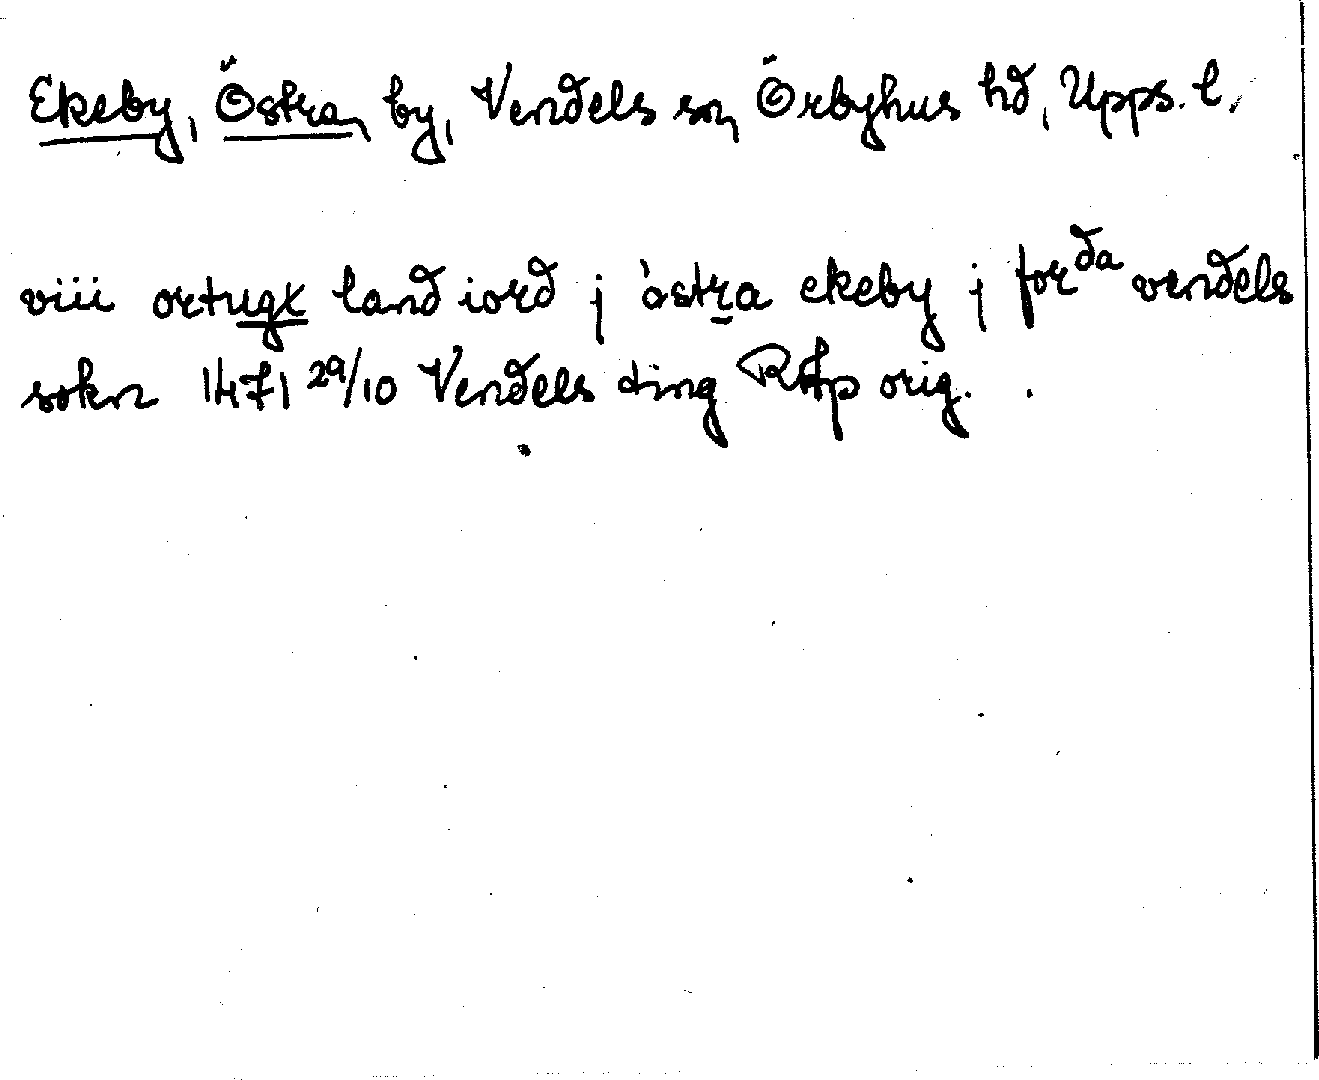 Ekeby, Östra, by, Vendels sn, Örbyhus hd, Upps. l.
viii ortugx land iord j òstra ekeby j forda vendels
sokn 1471 29/10 Vendels ting RAp orig.